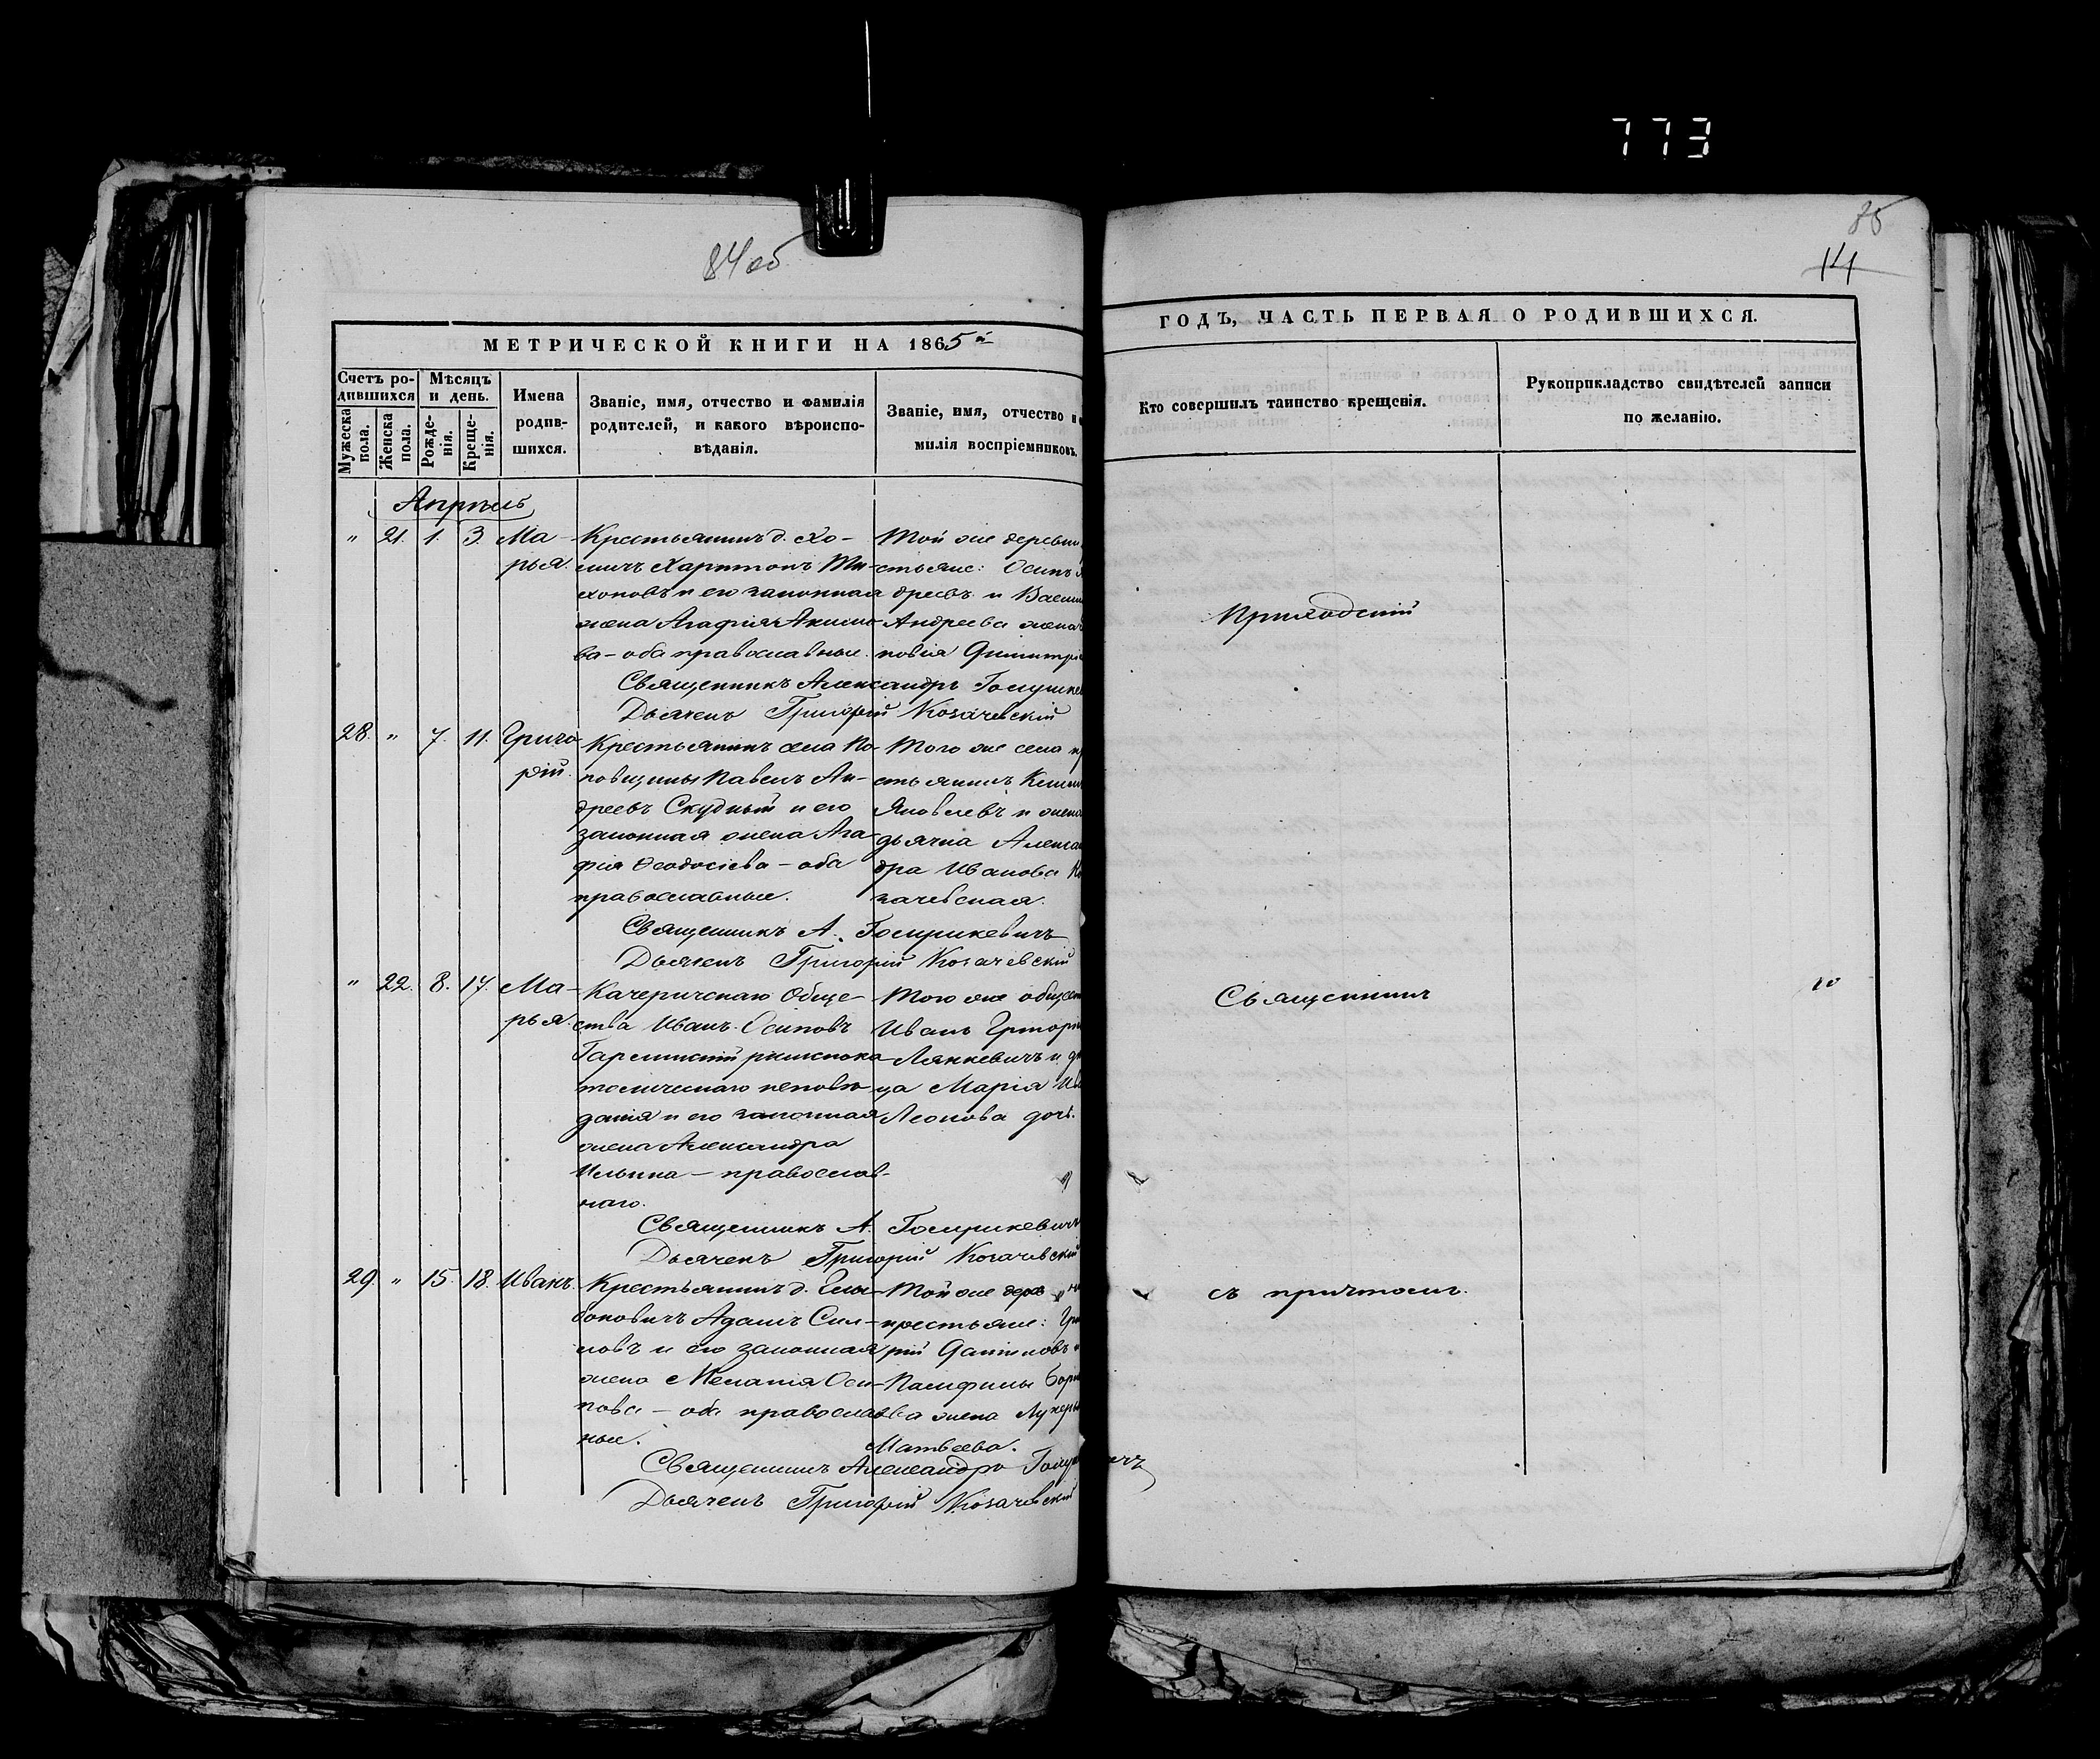 773
84об
85
14
МЕТРИЧЕСКОЙ КНИГИ НА 1865й
ГОДЪ, ЧАСТЬ ПЕРВАЯ О РОДИВШИХСЯ.
Счетъ ро-
дившихся
Мужеска
пола.
Женска
пола.
Мѣсяцъ
и день.
Рожде-
нія.
Креще-
нія.
Имена
родив-
шихся.
Званіе, имя, отчество и фамилія
родителей, и какого вѣроиспо-
вѣданія.
Званіе, имя, отчество и
милія воспріемниковъ.
Кто совершилъ таинство крещенія.
Рукоприкладство свидѣтелей записи
по желанію.
Апрѣль
" 21. 1. 3. Ма-
рья.
Крестьянинъ д. Хо-
мичъ Харитонъ Ти-
хоновъ и его законная
жена Агафія Акимо-
ва – оба православные.
Той же деревни
стьяне: Осипъ
дреевъ и
Андреева жена
Димитрі
Священникъ Александръ
Дьячекъ Григорій Козачевскій
28. " 7. 11. Григо-
рій.
Крестьянинъ села По-
повщины Павелъ Ан-
дреевъ Скудный и его
законная жена Ага-
фія Ѳеодосіева – оба
православные.
Того же села кр
стьянинъ
Яковлевъ и жена
дьячка Алексан
дра Иванова Ко
зачевская.
Священникъ А. Голушкевичъ
Дьячекъ Григорій Козачевскій
" 22. 8. 17. Ма-
рья.
Качеричскаго Обще-
ства Иванъ Осиповъ
римскока-
толическаго исповѣ-
данія и его законная
жена Александра
Ильина – православ-
наго.
Того же общест
Иванъ Григорі
Лянкевичъ и дѣ
ца Марія Ив
Леонова дочь.
Священникъ А. Голушкевичъ
Дьячекъ Григорій Козачевскій
29. " 15. 18. Иванъ.
Крестьянинъ д. Глы-
боковичъ Адамъ Сил-
ковъ и его законная
жена Меланія Оси-
пова – оба православ-
ные.
Той же дерев
крестьяне: Гри
рій Даниловъ и
Памфилы Бори
ва жена Лукерь
Матвеева.
Священникъ Александръ
Дьячекъ Григорій Козачевскій
Приходскій
Священникъ
съ причтомъ.